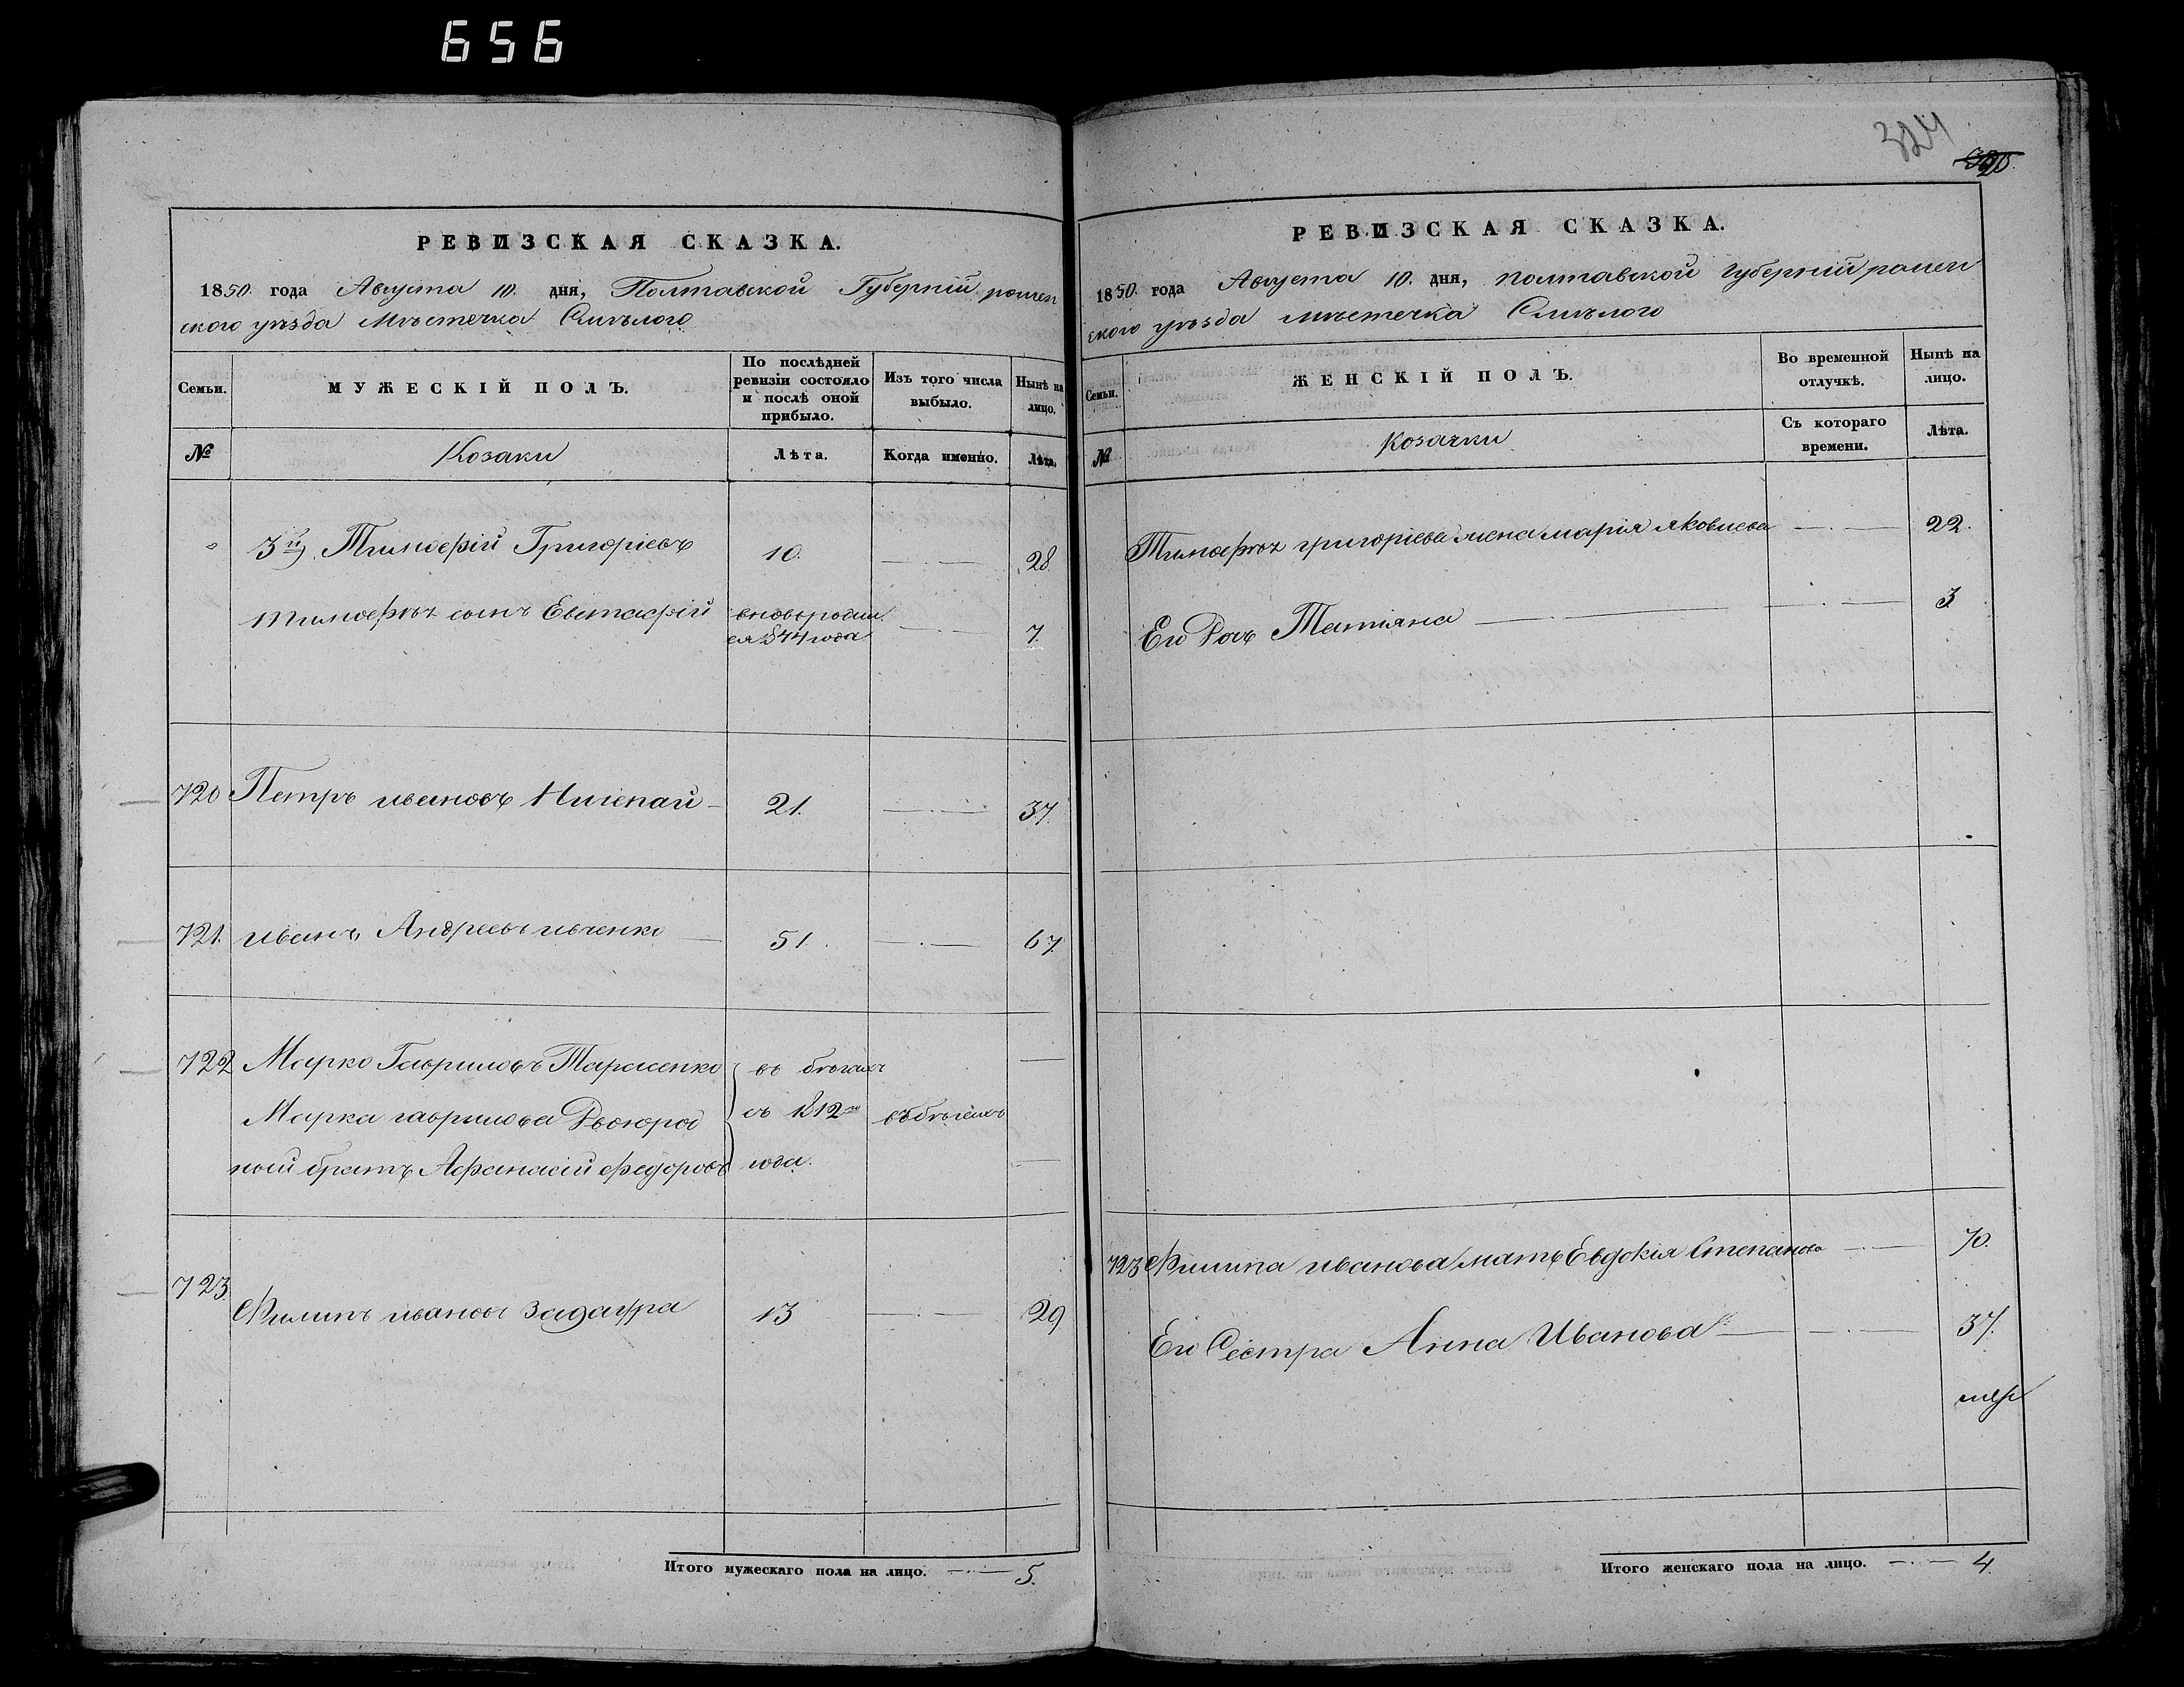 656
324
320
РЕВИЗСКАЯ СКАЗКА.
1850. года Августа 10. дня, Полтавской Губерній ромен
ского уѣзда Мѣстечка Смѣлого
Семьи.
МУЖЕСКІЙ ПОЛЪ.
По послѣдней ревизіи состояло и послѣ оной прибыло.
Изъ того числа выбыло.
Нынѣ на лицо.
№
Козаки
Лѣта.
Когда именно.
Лѣта.
3й Тимофѣй Григоріевъ 10. 28.
Тимофѣя сынъ Евстафій вновь родил
ся 1844 года 7.
720 Петръ ивановъ 21. 37.
721. иванъ Андреевъ ивченко 51. 67.
722 Марко Гавриловъ Тарасенко въ бѣгахъ
Марка гаврилова Двоюрод съ 1812го въ бѣгахъ
ный братъ Афанасій Федоровъ года.
723. Филипъ ивановъ 13 29
Итого мужескаго пола на лицо. 5.
РЕВИЗСКАЯ СКАЗКА.
1850. года Августа 10. дня, полтавской губерній ромен
ского уѣзда мѣстечка Смѣлого
Семьи.
ЖЕНСКІЙ ПОЛЪ.
Во временной отлучкѣ.
Нынѣ на лицо.
№
Козачки
Съ котораго времени.
Лѣта.
Тимофѣя григоріева жена марія яковлева 22.
Его Дочь Татіяна 3
723 Филипа иванова мать Евдокія Степанова 70.
Его Сестра Анна Иванова 37.
Итого женскаго пола на лицо. 4.